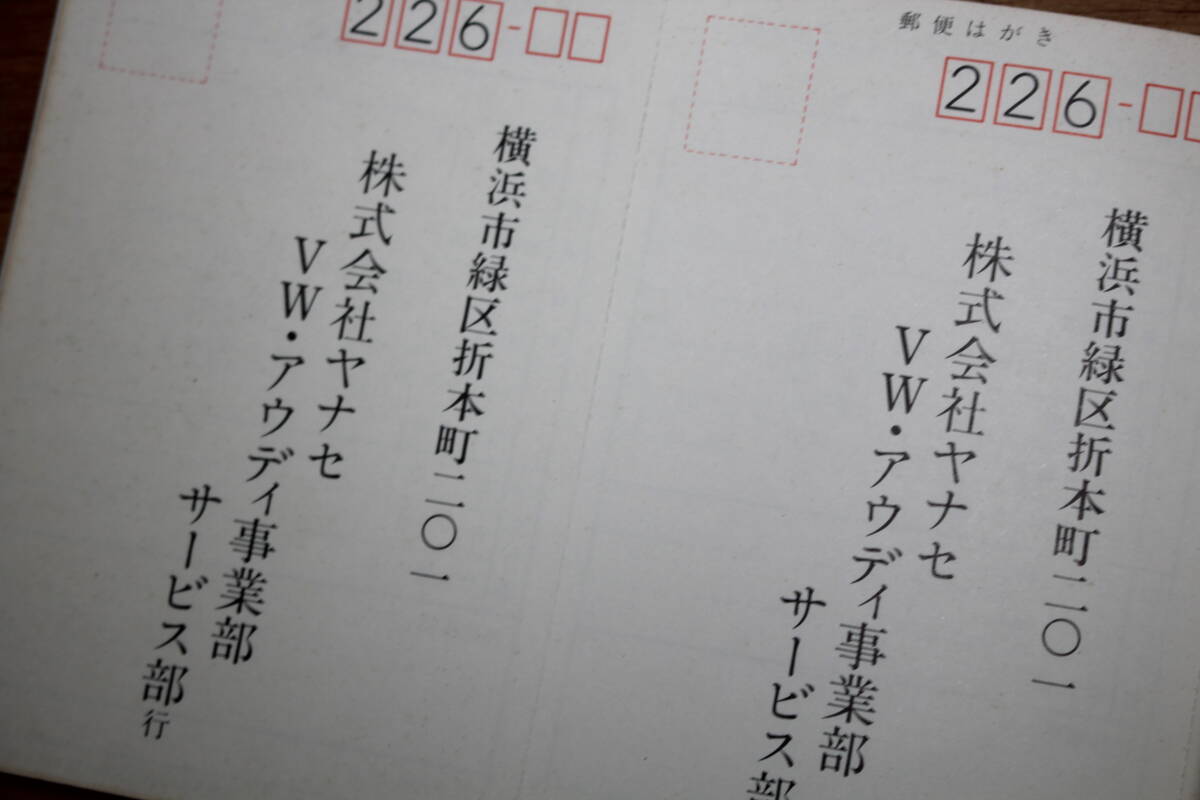 郵便はがき
226-
横浜市緑区折本町二〇一
株式会社ヤナセ
VW・アウディ事業部
サービス部
226-
横浜市緑区折本町二〇一
株式会社ヤナセ
VW・アウディ事業部
サービス部行